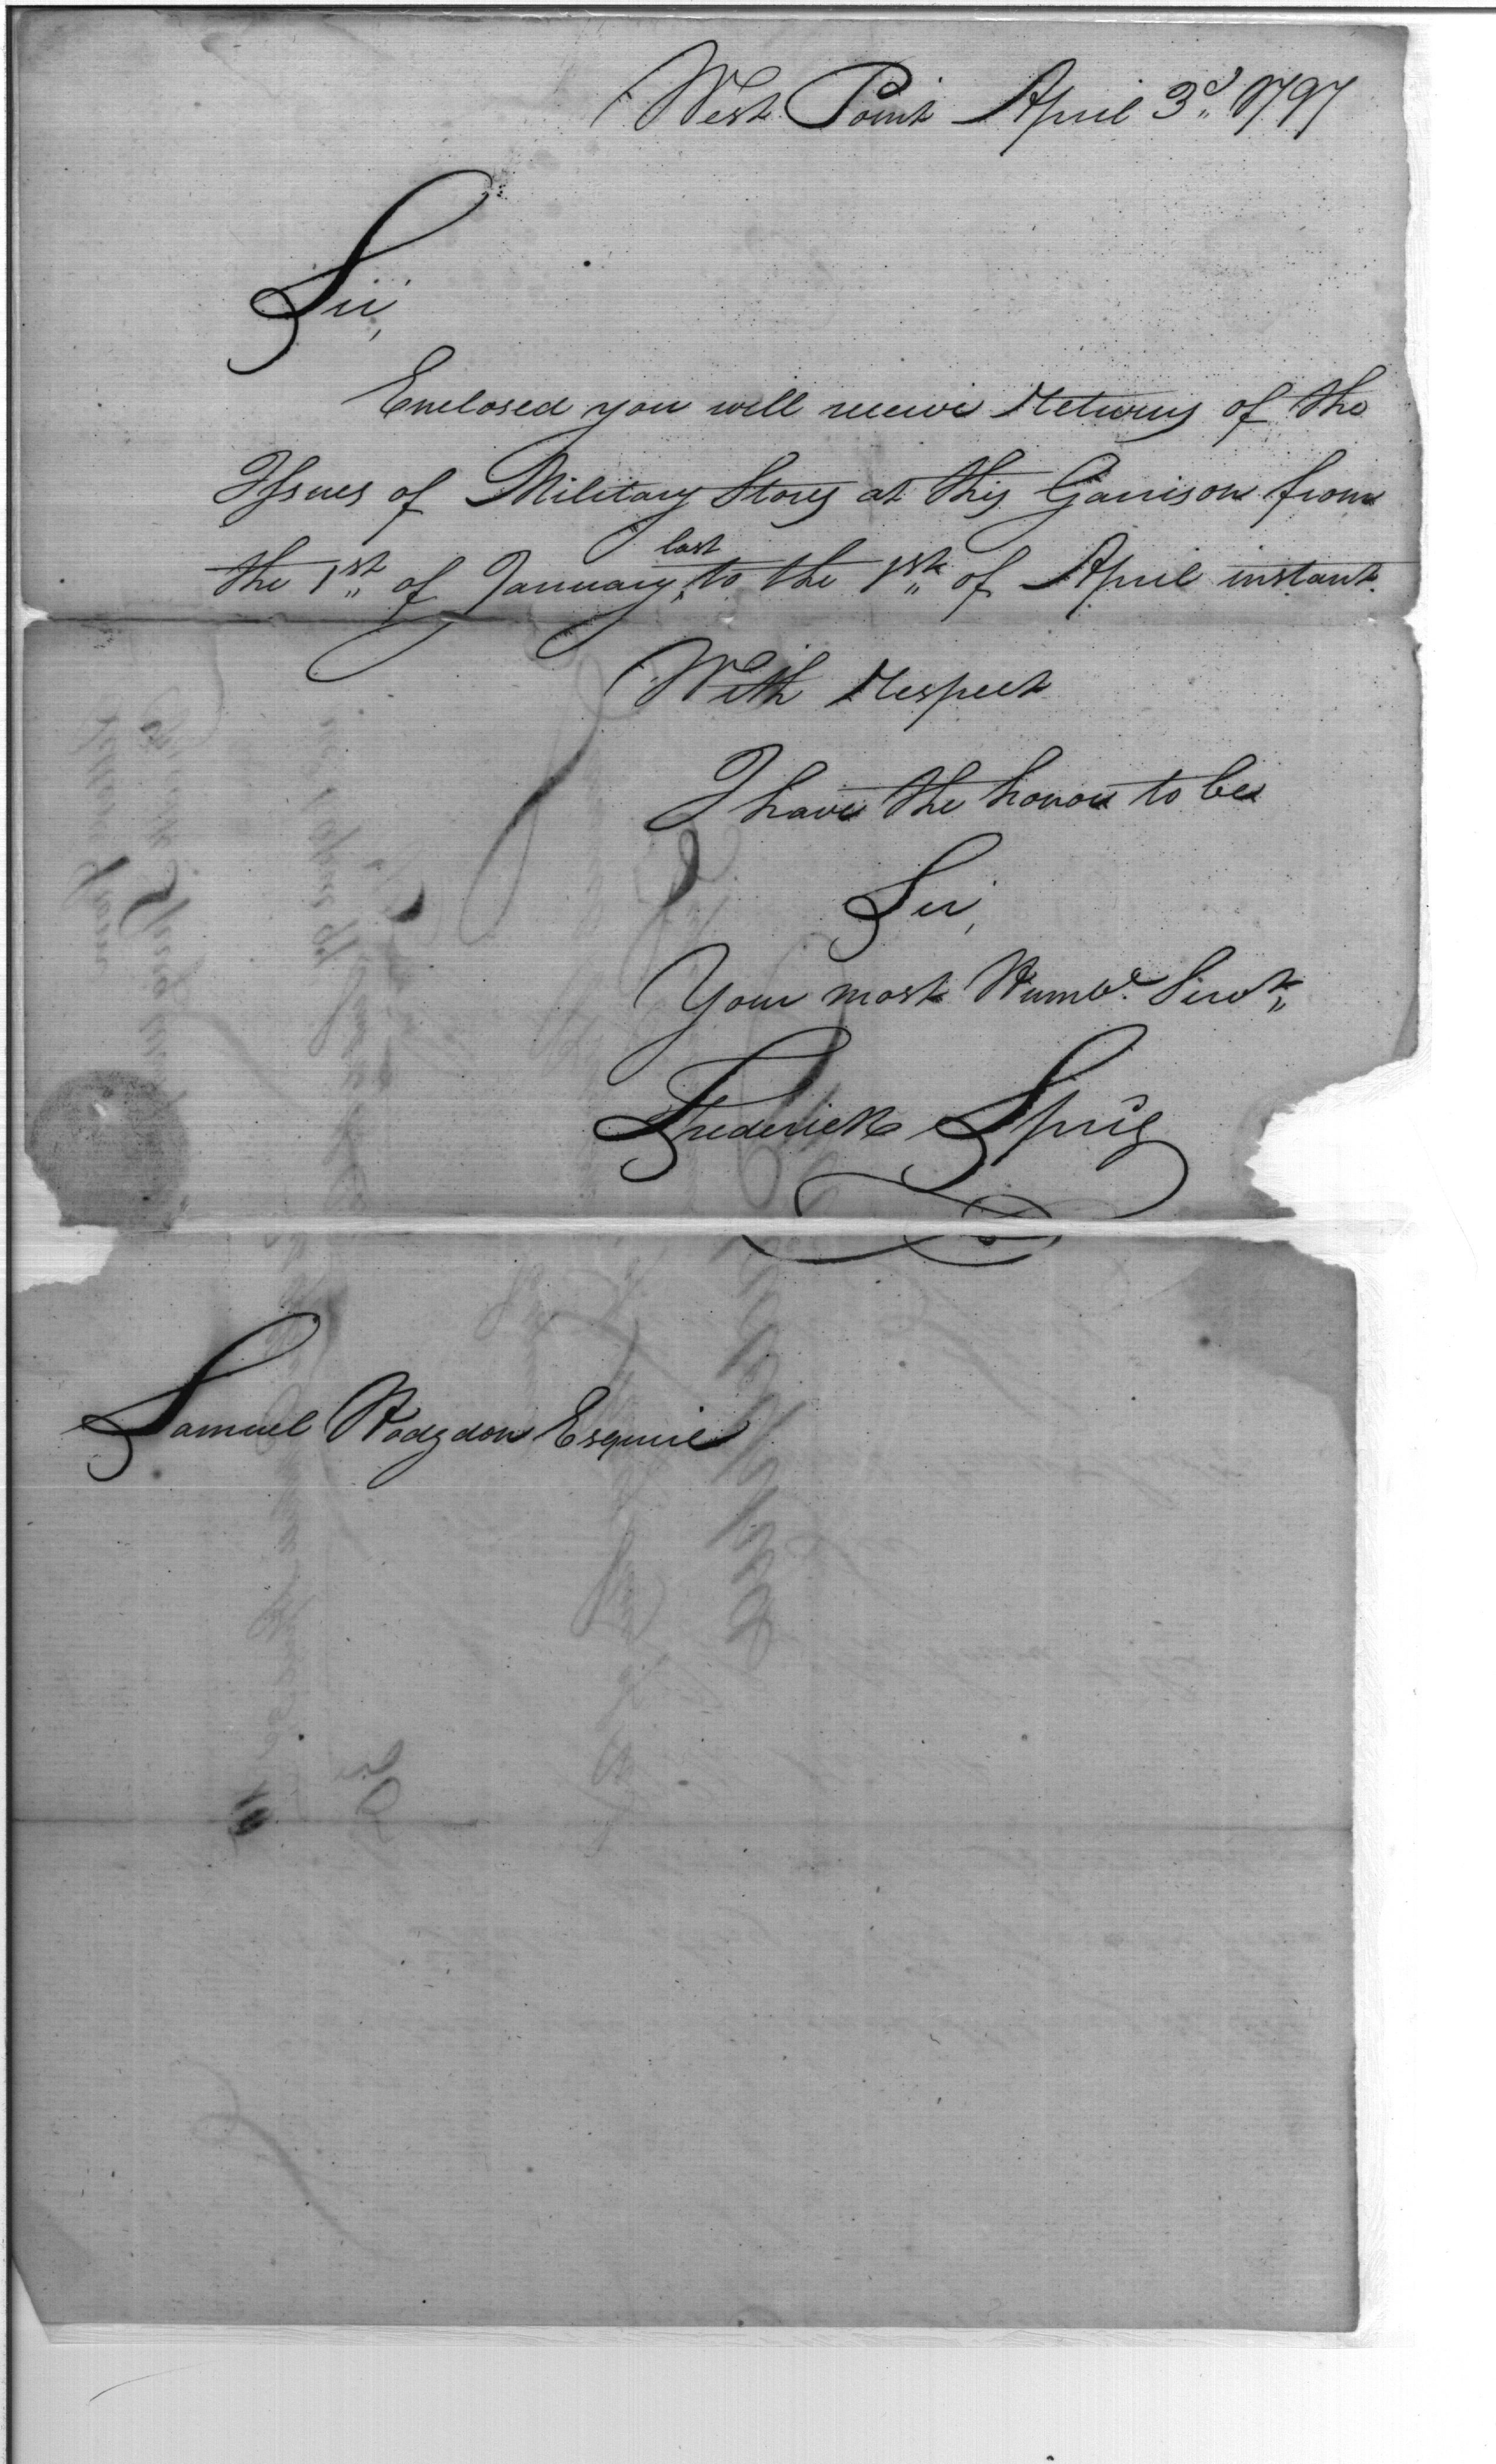 West Point April 3d 1797
Sir,
Enclosed you will receive Returns of the
Issues of Military Stores at this Garrison from
the 1st of January last to the 1st of April instant.
With Respect
I have the honor to be
Sir,
Your most Humbe. Servt
Frederick
Samuel Hodgdon Esquire